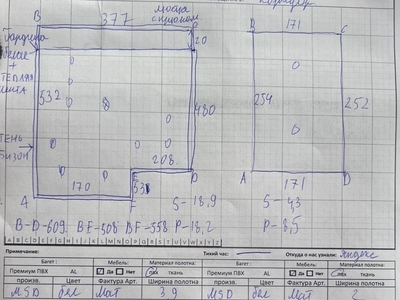 B 377 C
20
532
480
208
53
170
A F E D
S- 18,9
B-D-609 BF-508 BF-558 P-18,2
171
B C
254 252
A 171 D
S- 43
P- 8,5
Примечание: Тихий час: Откуда о нас узнали: Яндекс
Багет: Мебель: Материал полотна: Багет: Мебель: Материал полотна:
Премиум ПВХ AL Да Нет ткань Премиум ПВХ AL Да Нет ткань
произв. Цвет Фактура Арт. Ширина полотна произв. Цвет Фактура Арт. Ширина полотна
MSD бел Мат 3 9 MSD бел Мат 2